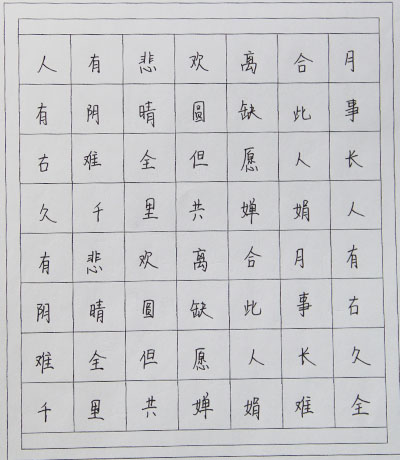 人有悲欢离合月
有阴晴圆缺此事
古难全但愿人长
久千里共婵娟人
有悲欢离合月有
阴晴圆缺此事古
难全但愿人长久
千里共婵娟难全